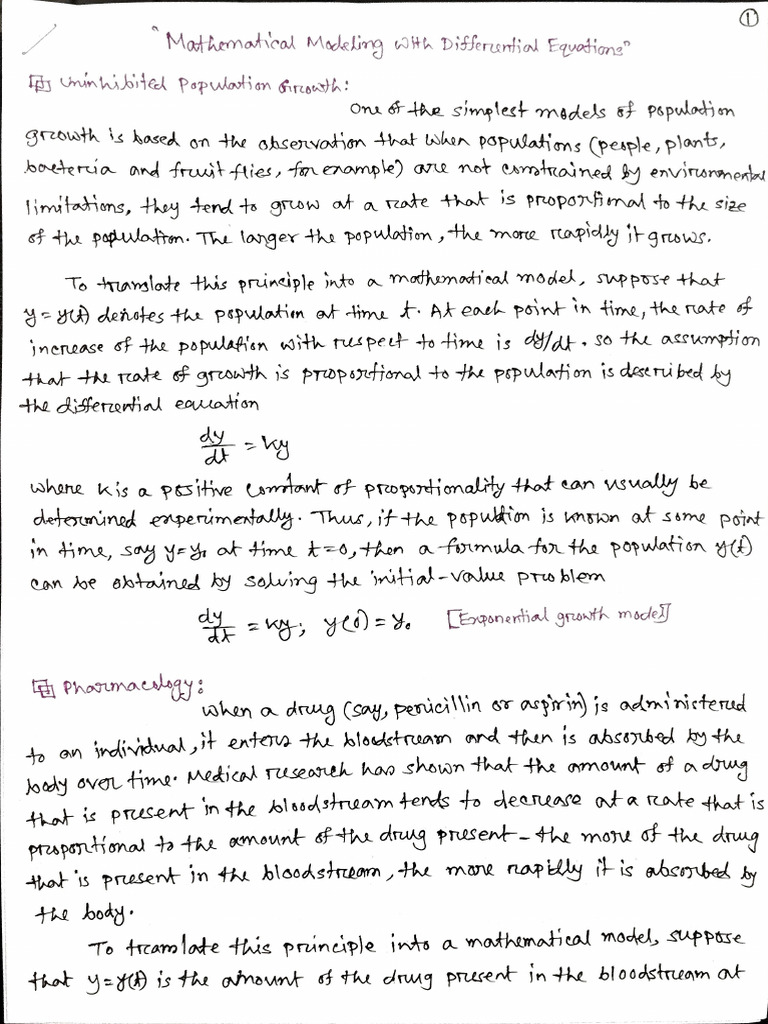 ①
"Mathematical Modeling with Differential Equations"
Uninhibited Population Growth:
One of the simplest models of population
growth is based on the observation that when populations (people, plants,
bacteria and fruit flies, for example) are not constrained by environmental
limitations, they tend to grow at a rate that is proportional to the size
of the population. The larger the population, the more rapidly it grows.
To translate this principle into a mathematical model, suppose that
y = y(t) denotes the population at time t. At each point in time, the rate of
increase of the population with respect to time is dy/dt. so the assumption
that the rate of growth is proportional to the population is described by
the differential equation
dy/dt = ky
where k is a positive constant of proportionality that can usually be
determined experimentally. Thus, if the popultion is known at some point
in time, say y=y₀ at time t=0, then a formula for the population y(t)
can be obtained by solving the initial-value problem
dy/dt = ky; y(0) = y₀ [Exponential growth model]
Pharmacology:
When a drug (say, penicillin or aspirin) is administered
to an individual, it enters the bloodstream and then is absorbed by the
body over time. Medical research has shown that the amount of a drug
that is present in the bloodstream tends to decrease at a rate that is
proportional to the amount of the drug present – the more of the drug
that is present in the bloodstream, the more rapidly it is absorbed by
the body.
To translate this principle into a mathematical model, suppose
that y = y(t) is the amount of the drug present in the bloodstream at